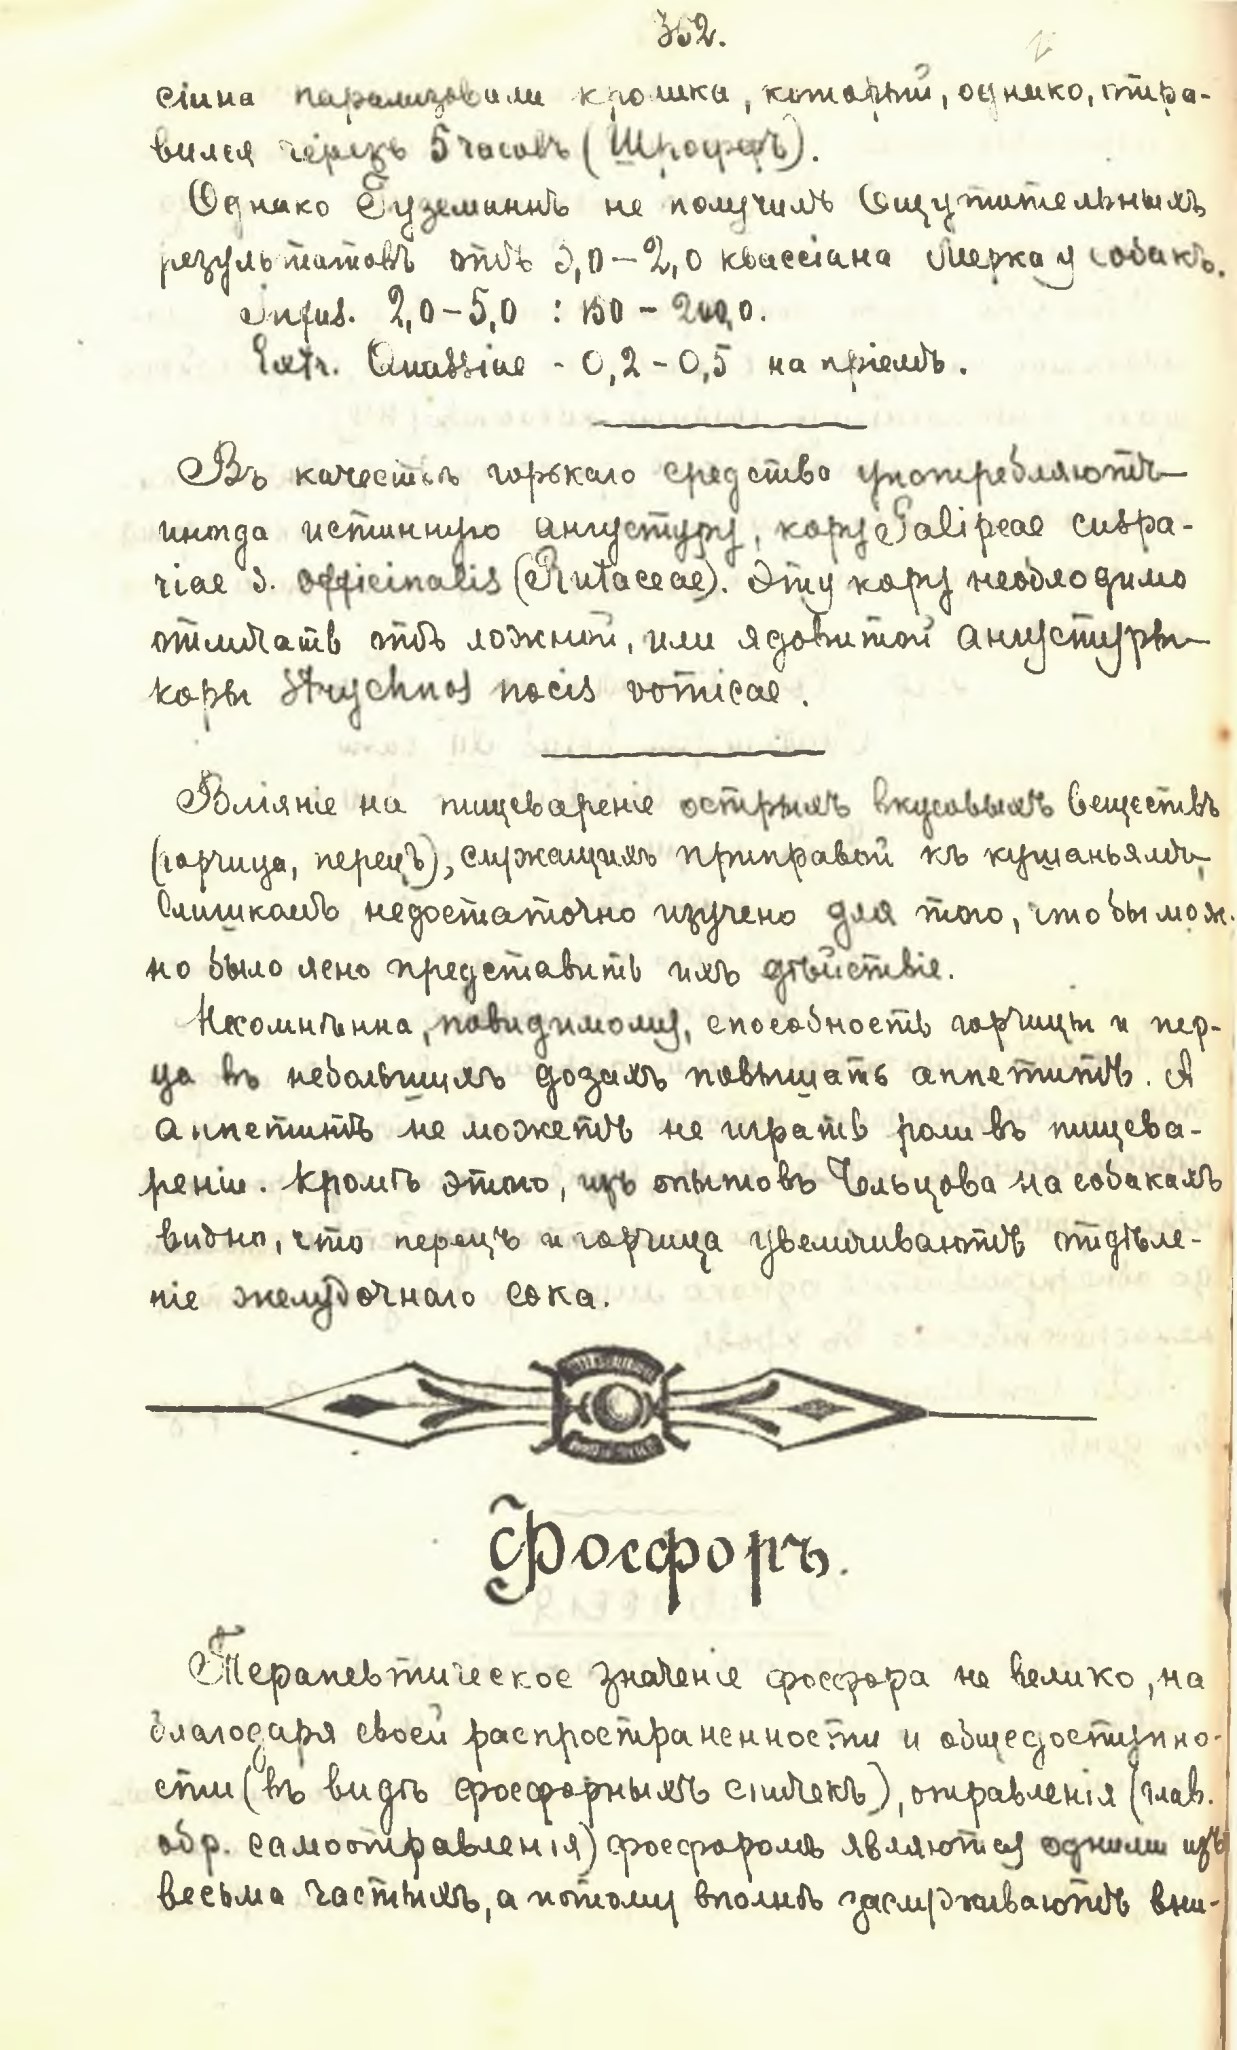 352.
сіина парализовали кролика, который, однако, опра-
вился черезъ 5 часовъ (Шроффъ).
Однако Гуземаннъ не получилъ ощутительныхъ
результатовъ отъ 2,0 квассіана Мерка у собакъ.
Infus. 2,0-5,0 : 150 - 200,0.
Extr. Quassiae - 0,2-0,5 на пріемъ.
Въ качествѣ горькаго средства употребляютъ
иногда истинную ангустуру, кору Galipeae cuspa-
riae s. officinalis (Rutaceae). Эту кору необходимо
отличать отъ ложной, или ядовитой ангустуры-
коры Strychnos nocis vomicae.
Вліяніе на пищевареніе острыхъ вкусовыхъ веществъ
(горчица, перецъ), служащихъ приправой къ кушаньямъ,
слишкомъ недостаточно изучено для того, чтобы мож-
но было ясно представить ихъ дѣйствіе.
Несомнѣнна, повидимому, способность горчицы и пер-
ца въ небольшихъ дозахъ повышать аппетитъ. А
аппетитъ не можетъ не играть роли въ пищева-
реніи. Кромѣ этого, изъ опытовъ Чельцова на собакахъ
видно, что перецъ и горчица увеличиваютъ отдѣле-
ніе желудочнаго сока.
Фосфоръ.
Терапевтическое значеніе фосфора не велико, на
благодаря своей распространенности и общедоступно-
сти (въ видѣ фосфорныхъ спичекъ), отравленія (глав.
обр. самоотравленія) фосфоромъ являются одними изъ
весьма частыхъ, а потому вполнѣ заслуживаютъ вни-